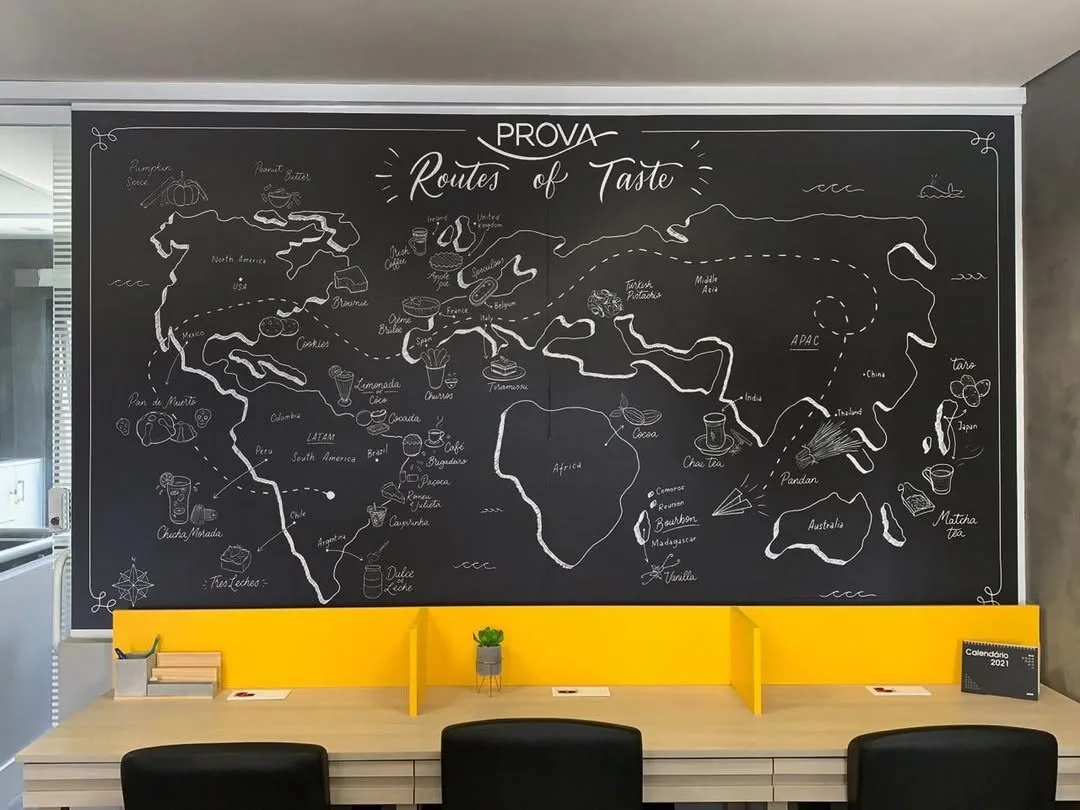 PROVA
Routes of Taste
Pumpkin
Spice
Peanut Butter
North America
USA
Mexico
Brownie
Cookies
Ireland
United
Kingdom
Irish
Coffee
Apple
pie
Speculoos
Belgium
France
Crème
Brûlée
Italy
Spain
Churros
Tiramissu
Turkish
Pistachio
Middle
Asia
APAC
China
India
Thailand
taro
Japan
Pan de Muerto
Limonada
de
Côco
Cocada
Café
Brigadeiro
Paçoca
Romeu
Julieta
Caipirinha
Colombia
LATAM
South America
Brazil
Peru
Chicha Morada
Chile
Tres Leches
Argentina
Dulce
de
Leche
Africa
Cocoa
Comoros
Reunion
Bourbon
Madagascar
Vanilla
Chai tea
Pandan
Australia
Matcha
tea
N
Calendário
2021